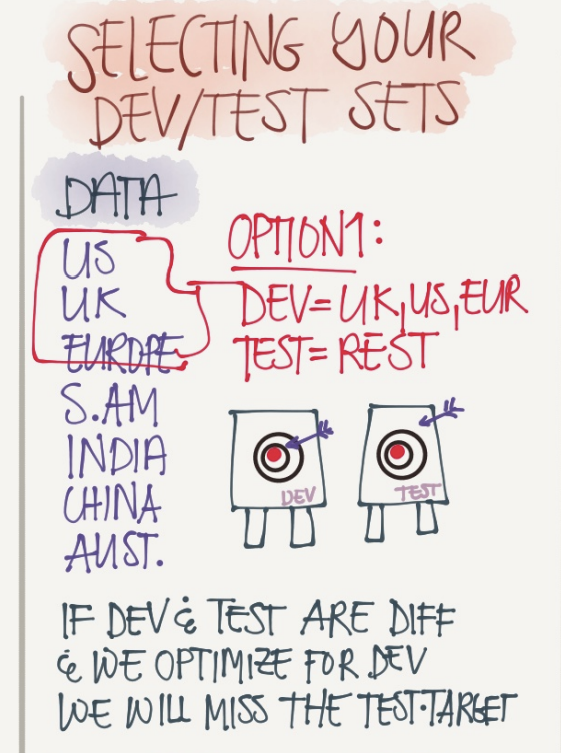 SELECTING YOUR
DEV/TEST SETS
DATA
US
UK
EUROPE
S.AM
INDIA
CHINA
AUST.
OPTION1:
DEV=UK,US,EUR
TEST=REST
DEV
TEST
IF DEV & TEST ARE DIFF
& WE OPTIMIZE FOR DEV
WE WILL MISS THE TEST·TARGET